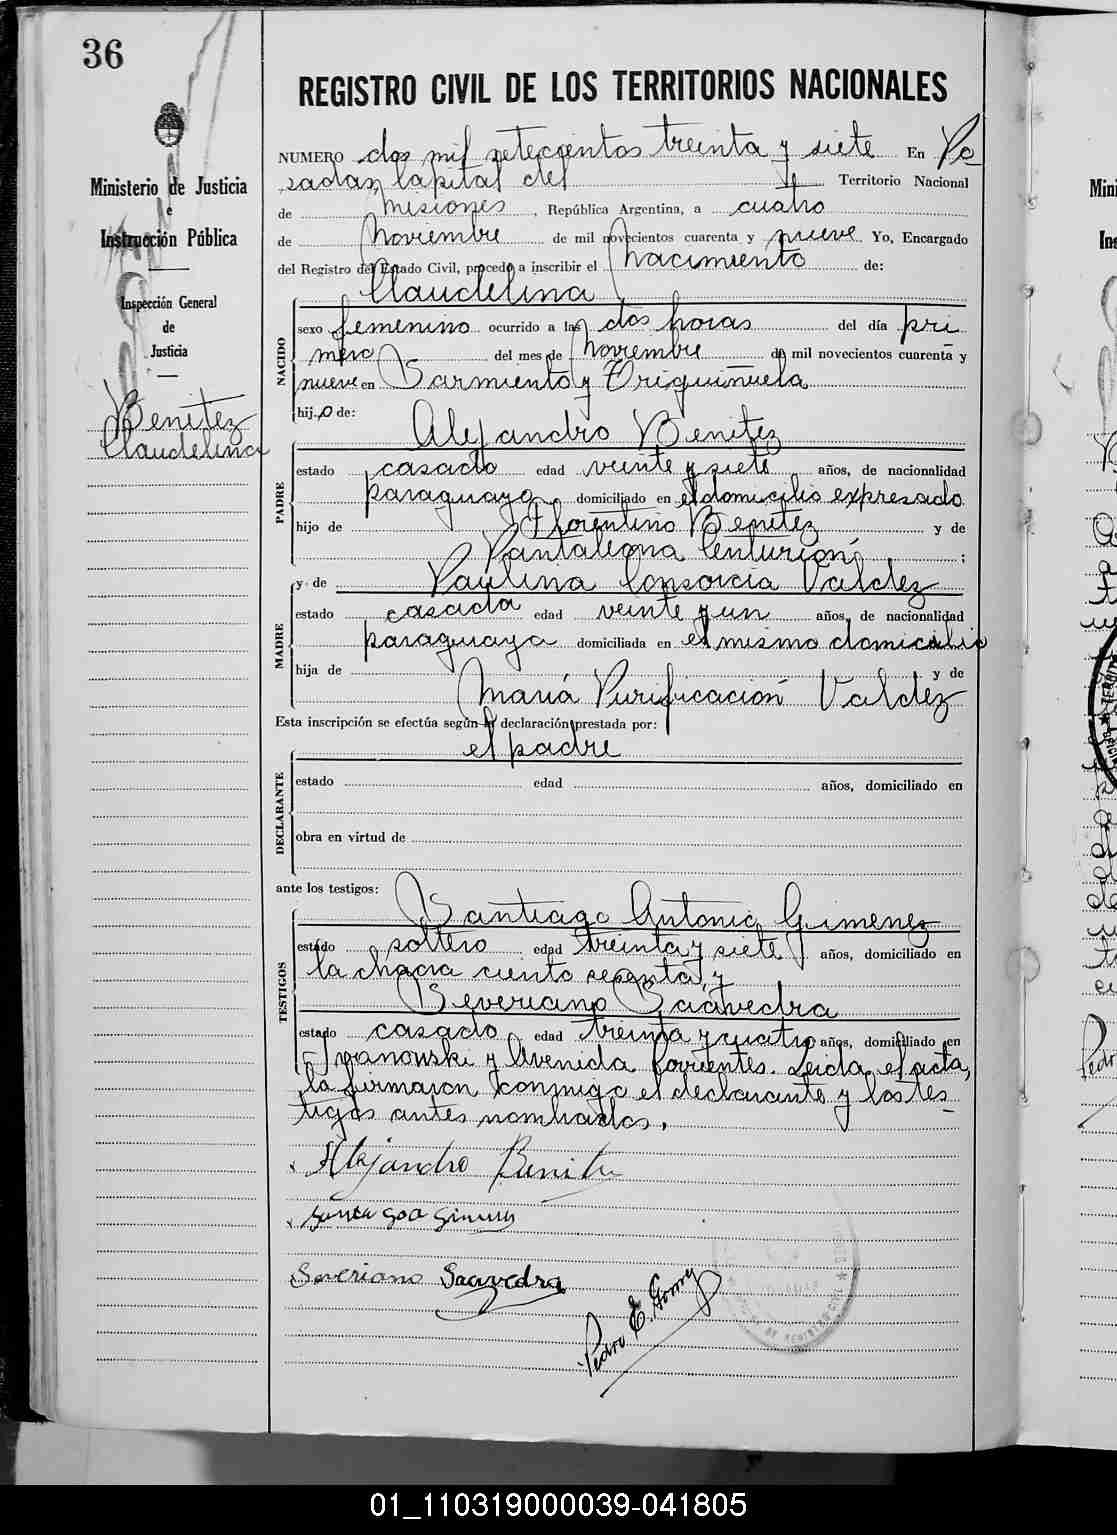 36
Ministerio de Justicia
e
Instrucción Pública
Inspección General
de
Justicia
Benitez
Claudelina
REGISTRO CIVIL DE LOS TERRITORIOS NACIONALES
NUMERO dos mil setecientos treinta y siete En Po
sadas, Capital del Territorio Nacional
de Misiones, República Argentina, a cuatro
de Noviembre de mil novecientos cuarenta y nueve Yo, Encargado
del Registro del Estado Civil, procedo a inscribir el Nacimiento de:
Claudelina
NACIDO
sexo femenino ocurrido a las dos horas del día pri
mero del mes de Noviembre de mil novecientos cuarenta y
nueve en Sarmiento y
hij.a de:
Alejandro Benitez
PADRE
estado casado edad veinte y siete años, de nacionalidad
paraguaya domiciliado en el domicilio expresado
hijo de Florentino Benitez y de
Pantaleona Centurión ;
y de Paulina Consorcia Valdez
MADRE
estado casada edad veinte y un años, de nacionalidad
paraguaya domiciliada en el mismo domicilio
hija de y de
María Purificación Valdez
Esta inscripción se efectúa según la declaración prestada por:
el padre
DECLARANTE
estado edad años, domiciliado en
obra en virtud de
ante los testigos:
Santiago Antonio Gimenez
TESTIGOS
estado soltero edad treinta y siete años, domiciliado en
la chacra ciento sesenta, y
Severiano Saavedra
estado casado edad treinta y cuatro años, domiciliado en
y Avenida Corrientes. Leida el acta,
la firmaron conmigo el declarante y los tes
tigos antes nombrados.
Alejandro Benitez
Santiago Gimenez
Severiano Saavedra
Pedro E.
01_110319000039-041805